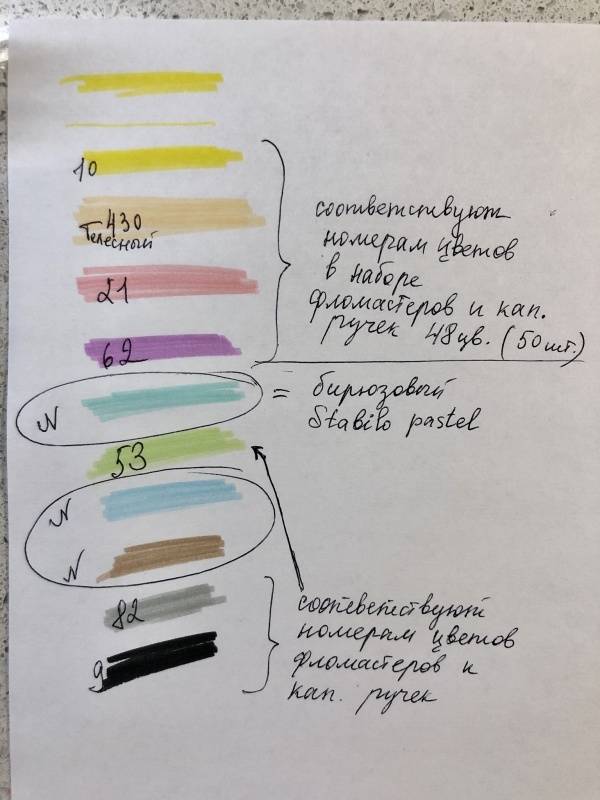 10
430
Телесный
21
62
соответствуют
номерам цветов
в наборе
фломастеров и кап.
ручек 48цв. (50шт.)
N
= бирюзовый
Stabilo pastel
53
N
N
82
9
соответствуют
номерам цветов
фломастеров и
кап. ручек